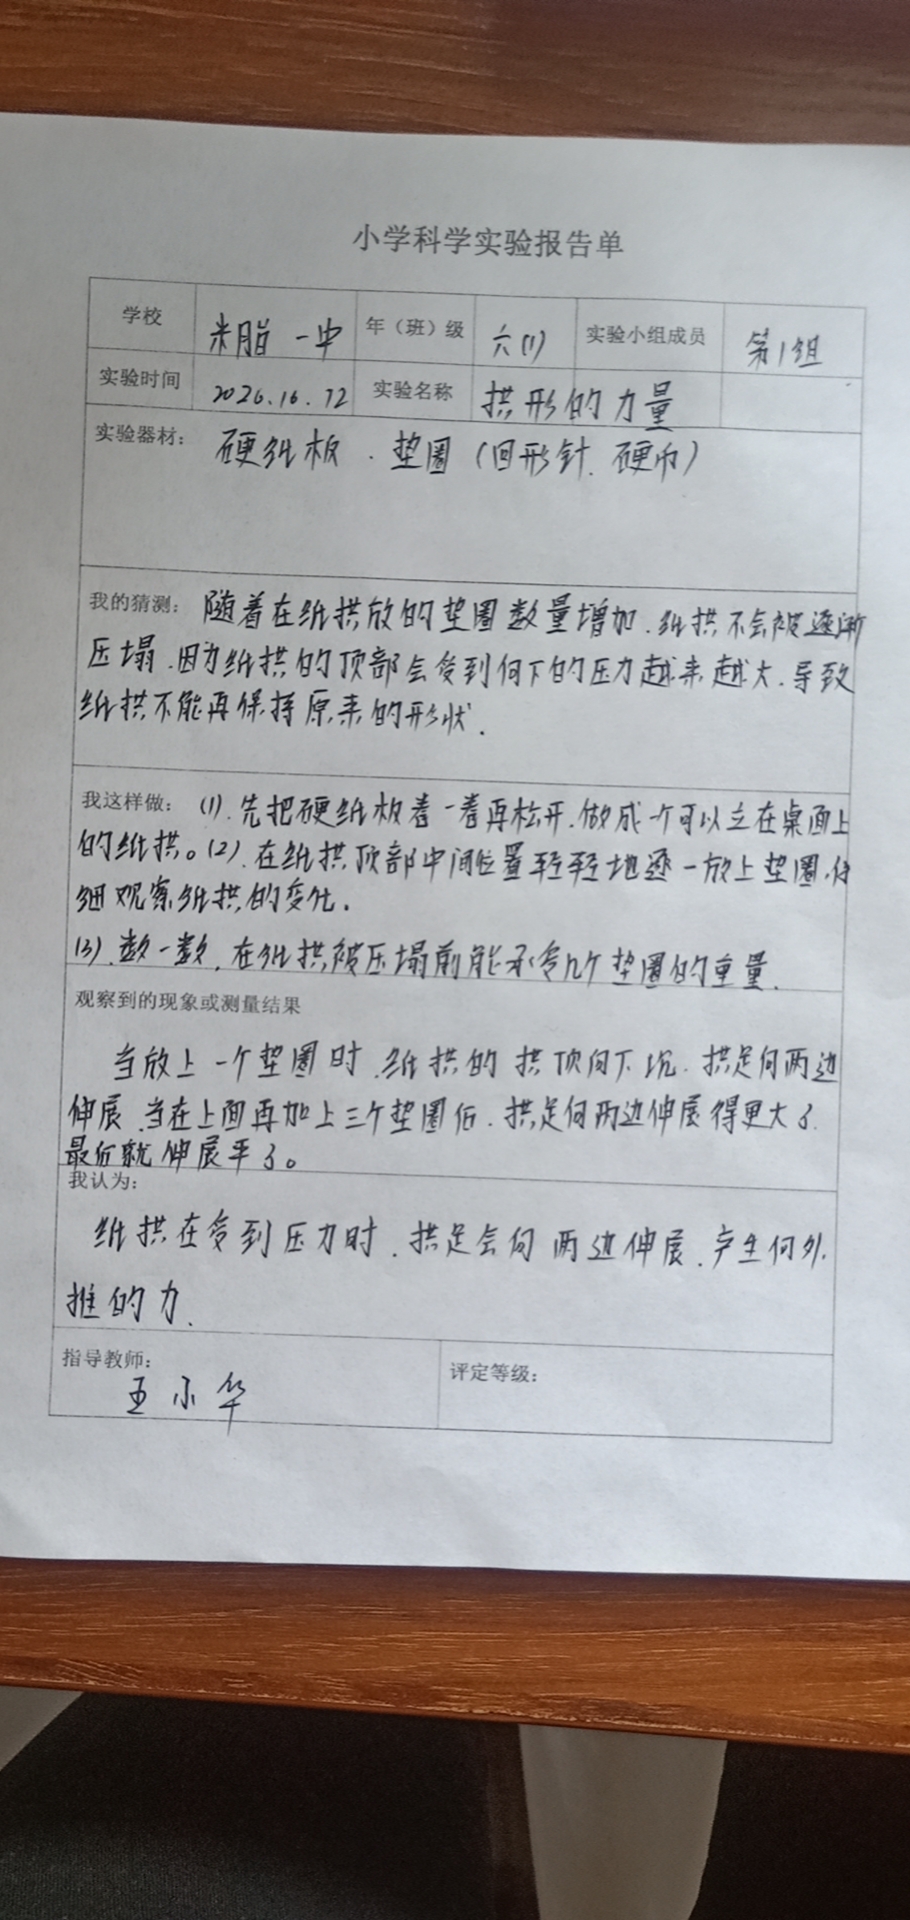 小学科学实验报告单
学校 米脂一中 年（班）级 六(1) 实验小组成员 第1组
实验时间 2026.16.12 实验名称 拱形的力量
实验器材： 硬纸板．垫圈（回形针．硬币）
我的猜测： 随着在纸拱放的垫圈数量增加．纸拱不会被逐渐
压塌．因为纸拱的顶部会受到向下的压力越来越大．导致
纸拱不能再保持原来的形状．
我这样做： (1)．先把硬纸板卷一卷再松开．做成一个可以立在桌面上
的纸拱。(2)．在纸拱顶部中间位置轻轻地逐一放上垫圈．仔
细观察纸拱的变化．
(3)．数一数．在纸拱被压塌前能承受几个垫圈的重量．
观察到的现象或测量结果
当放上一个垫圈时．纸拱的拱顶向下沉．拱足向两边
伸展．当在上面再加上三个垫圈后．拱足向两边伸展得更大了．
最后就伸展平了。
我认为：
纸拱在受到压力时．拱足会向两边伸展．产生向外
推的力．
指导教师： 王小华 评定等级：